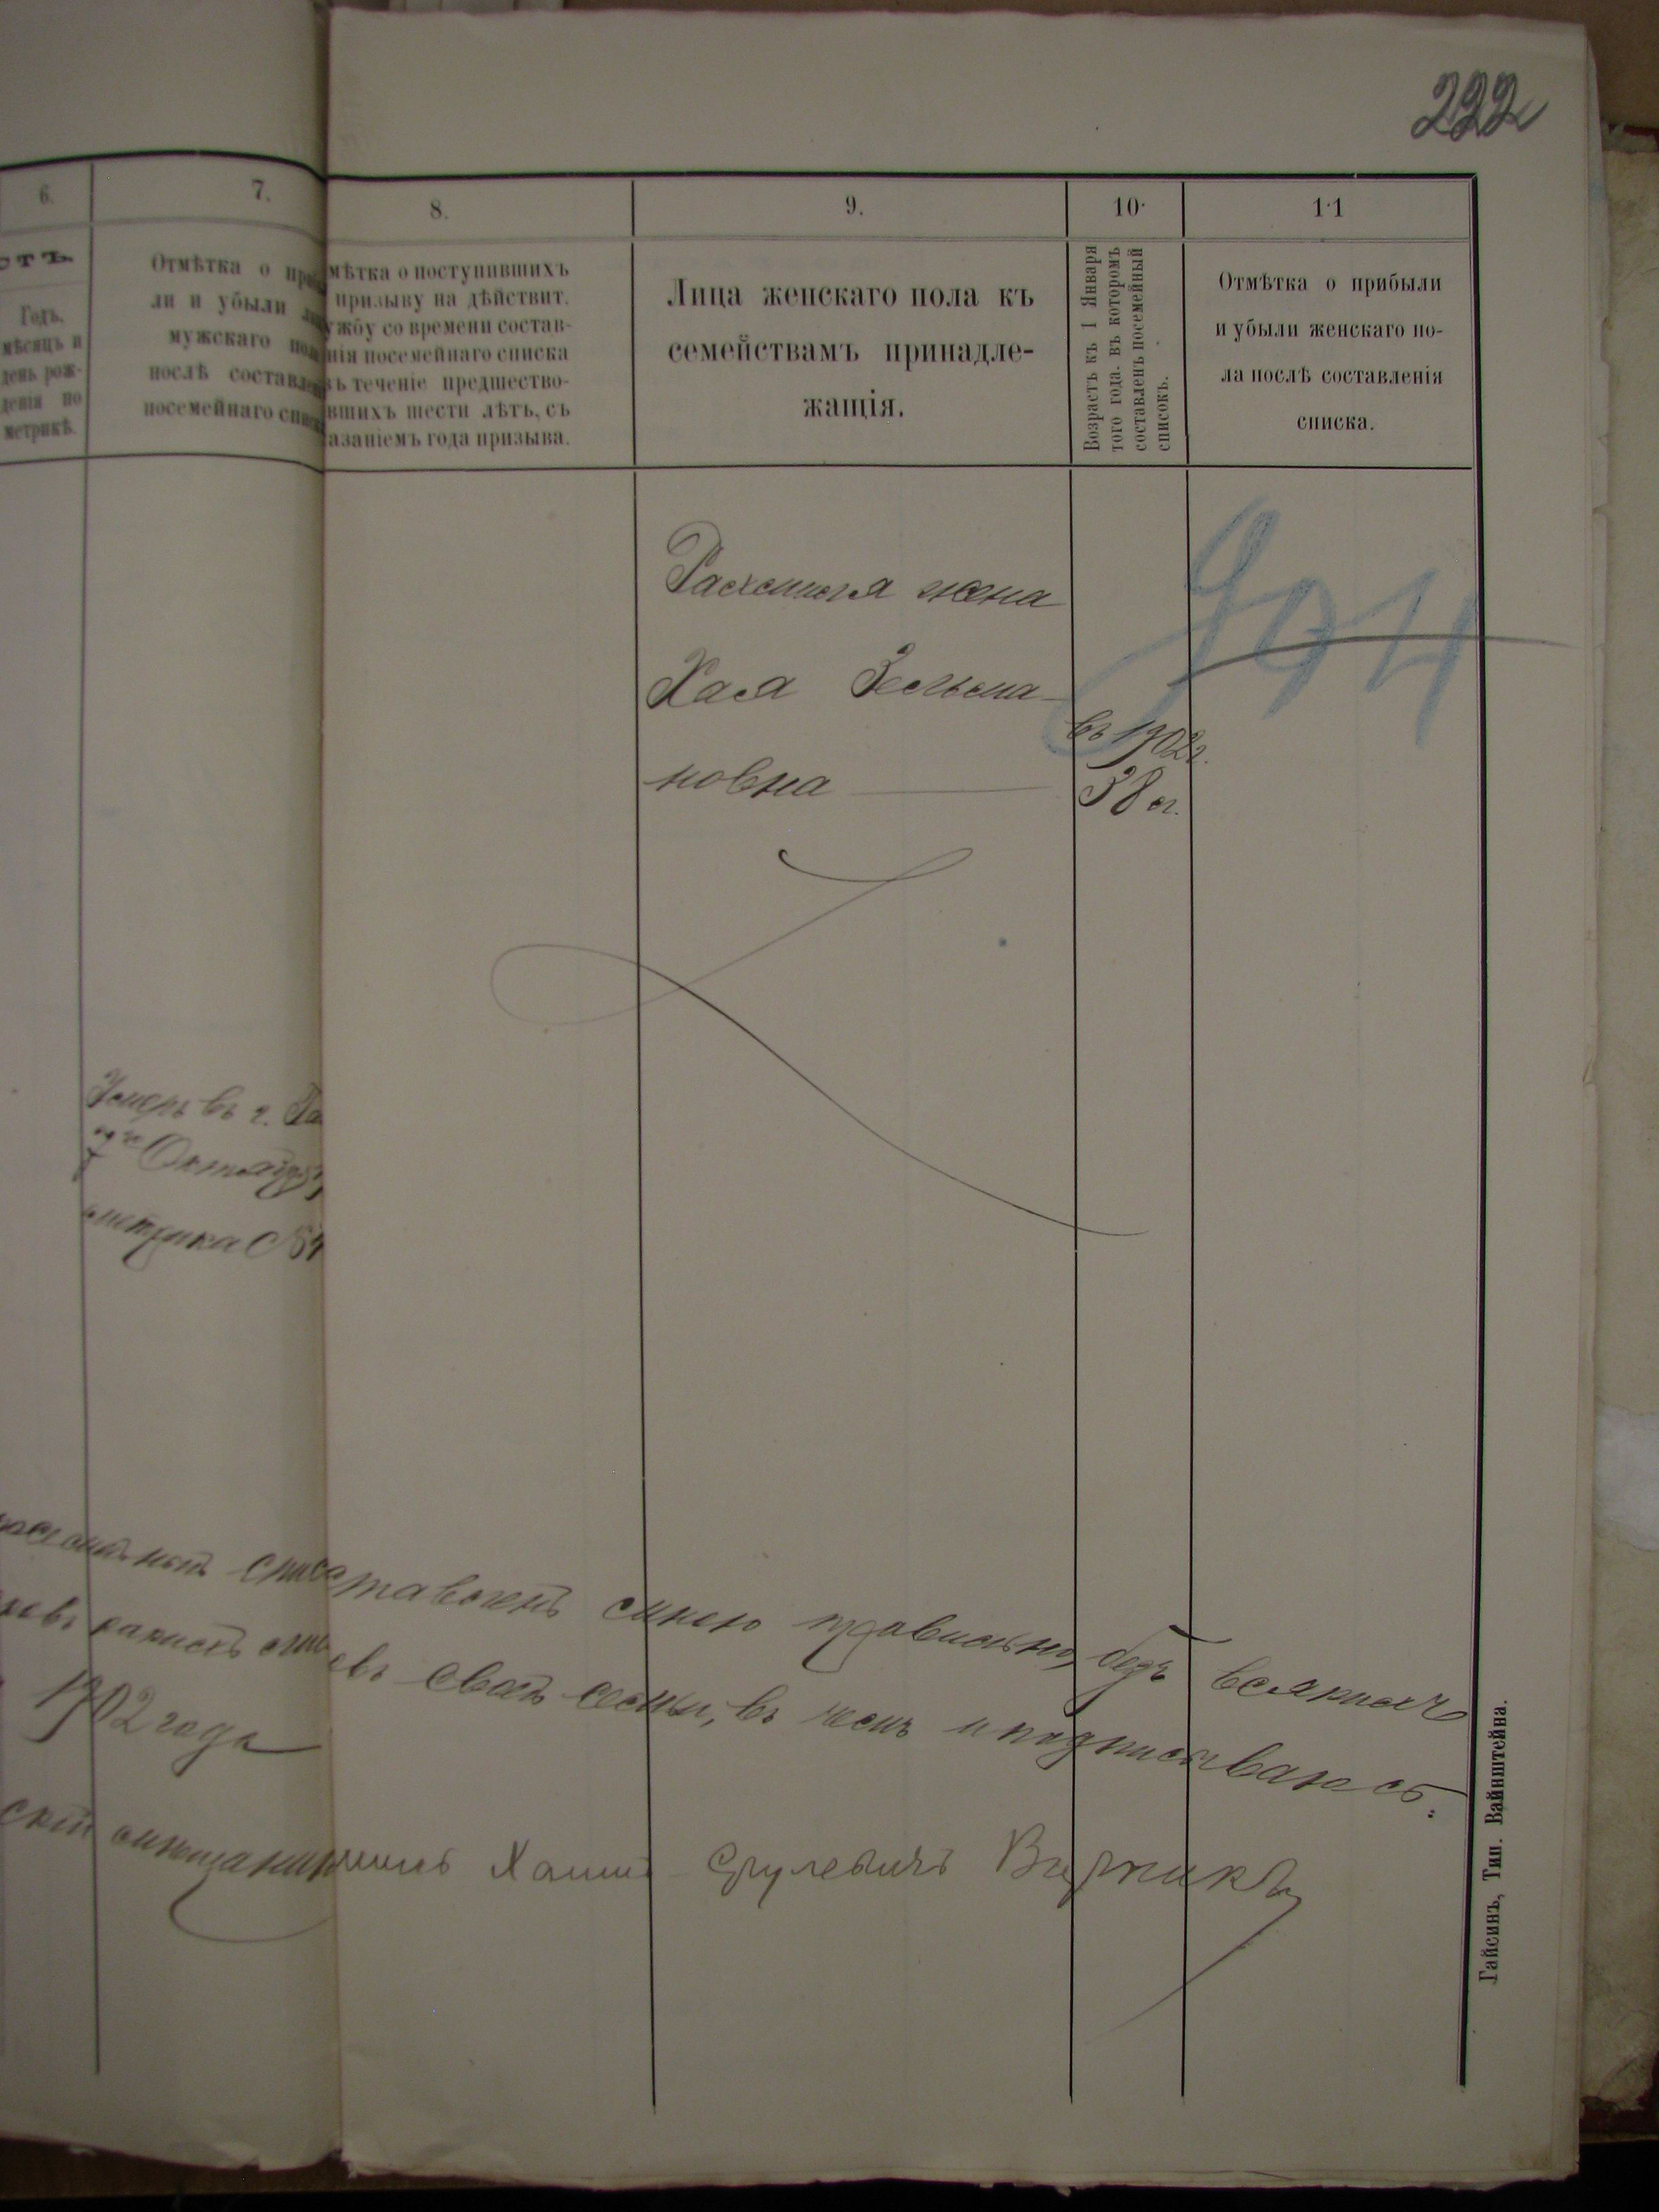 222
6.
7.
8.
9.
10.
11
Годъ,
мѣсяцъ и
день рож-
денія по
метрикѣ.
Отмѣтка о
ли и убыли
мужскаго
послѣ
посемейнаго
мѣтка о поступившихъ
призыву на дѣйствит.
ужбу со времени состав-
нія посемейнаго списка
въ теченіе предшество-
вшихъ шести лѣтъ, съ
азаніемъ года призыва.
Лица женскаго пола къ
семействамъ принадле-
жащія.
Возрастъ къ 1 Января
того года, въ которомъ
составленъ посемейный
списокъ.
Отмѣтка о прибыли
и убыли женскаго по-
ла послѣ составленія
списка.
жена
Хая Зельма-
новна
въ 1902 г.
38 л.
Умеръ въ г. Га
Октября
метрика №
ставленъ мною правильно, безъ всякихъ
евъ своей семьи, въ чемъ и подписываюсь.
1902 года
Срулевичъ
Гайсинъ, Тип. Вайнштейна.